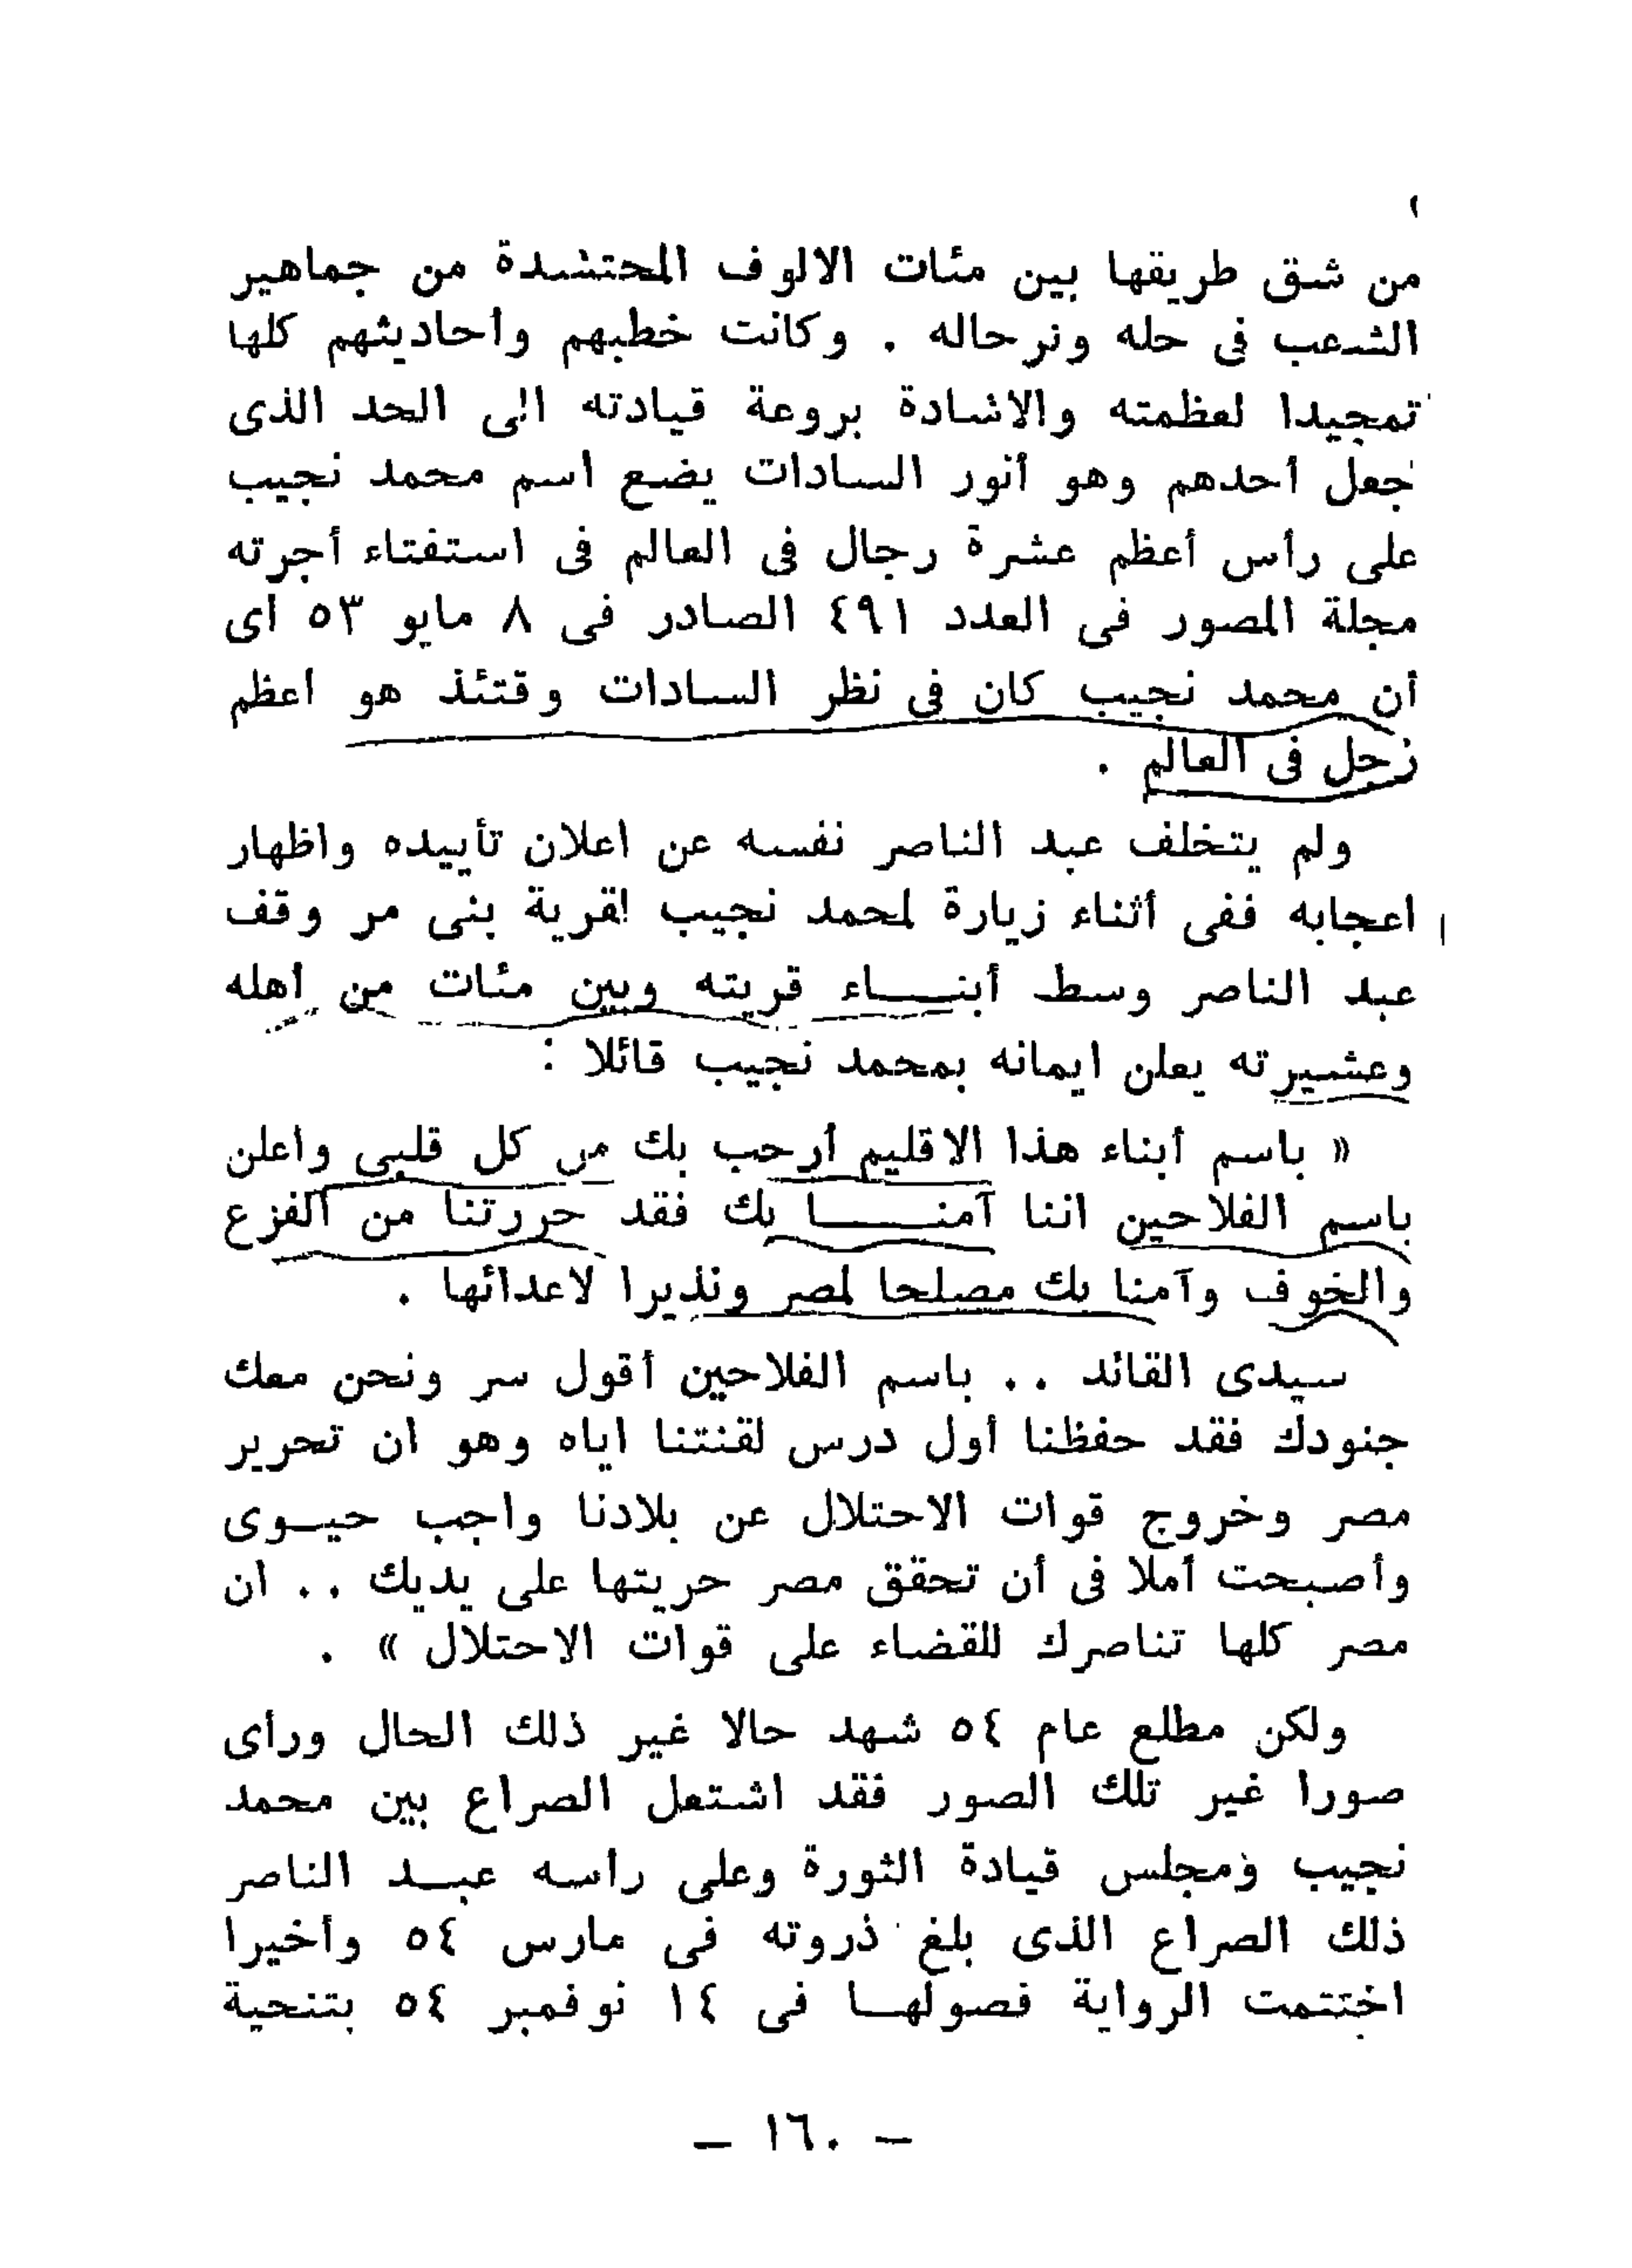 من شق طريقها بين مئات الالوف المحتشدة من جماهير
الشعب فى حله وترحاله . وكانت خطبهم وأحاديثهم كلها
تمجيدا لعظمته والاشادة بروعة قيادته الى الحد الذى
جعل أحدهم وهو أنور السادات يضع اسم محمد نجيب
على رأس أعظم عشرة رجال فى العالم فى استفتاء أجرته
مجلة المصور فى العدد ٤٩١ الصادر فى ٨ مايو ٥٣ أى
أن محمد نجيب كان فى نظر السادات وقتئذ هو اعظم
رجل فى العالم .
ولم يتخلف عبد الناصر نفسه عن اعلان تأييده واظهار
اعجابه ففى أثناء زيارة لمحمد نجيب لقرية بنى مر وقف
عبد الناصر وسط أبنـــاء قريته وبين مئات من أهله
وعشيرته يعلن ايمانه بمحمد نجيب قائلا :
« باسم أبناء هذا الاقليم أرحب بك من كل قلبى وأعلن
باسم الفلاحين اننا آمنـــا بك فقد حررتنا من الفزع
والخوف وآمنا بك مصلحا لمصر ونذيرا لاعدائها .
سيدى القائد . . باسم الفلاحين أقول سر ونحن معك
جنودك فقد حفظنا أول درس لقنتنا اياه وهو ان تحرير
مصر وخروج قوات الاحتلال عن بلادنا واجب حيـوى
وأصبحت أملا فى أن تحقق مصر حريتها على يديك . . ان
مصر كلها تناصرك للقضاء على قوات الاحتلال » .
ولكن مطلع عام ٥٤ شهد حالا غير ذلك الحال ورأى
صورا غير تلك الصور فقد اشتعل الصراع بين محمد
نجيب ومجلس قيادة الثورة وعلى رأسه عبـد الناصر
ذلك الصراع الذى بلغ ذروته فى مارس ٥٤ وأخيرا
اختتمت الرواية فصولهـا فى ١٤ نوفمبر ٥٤ بتنحية
— ١٦٠ —